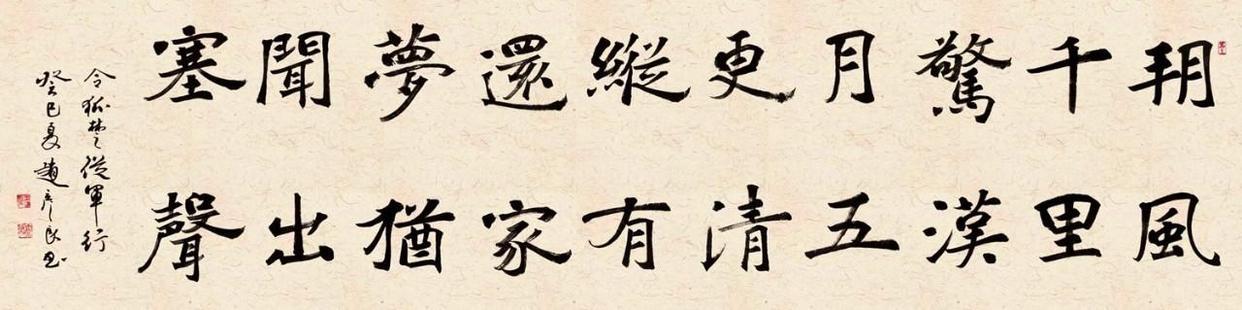 朔風
千里
驚漢
月五
更清
縱有
還家
夢猶
聞出
塞聲
令狐楚從軍行
癸巳夏趙彥良書